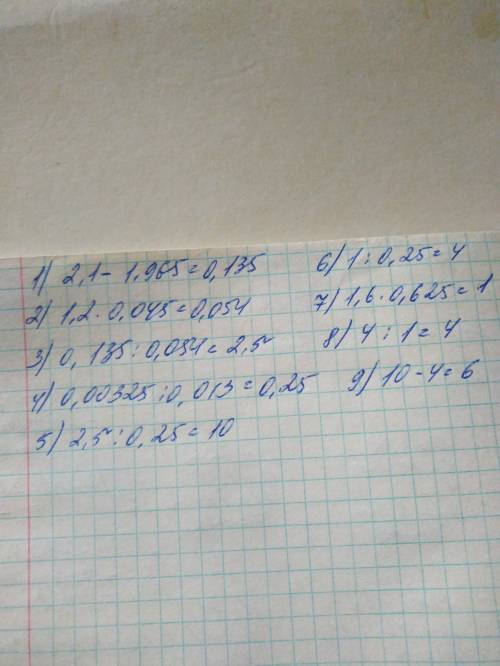 1) 2,1 - 1,965 = 0,135
2) 1,2 · 0,045 = 0,054
3) 0,135 : 0,054 = 2,5
4) 0,00325 : 0,013 = 0,25
5) 2,5 : 0,25 = 10
6) 1 : 0,25 = 4
7) 1,6 · 0,625 = 1
8) 4 : 1 = 4
9) 10 - 4 = 6